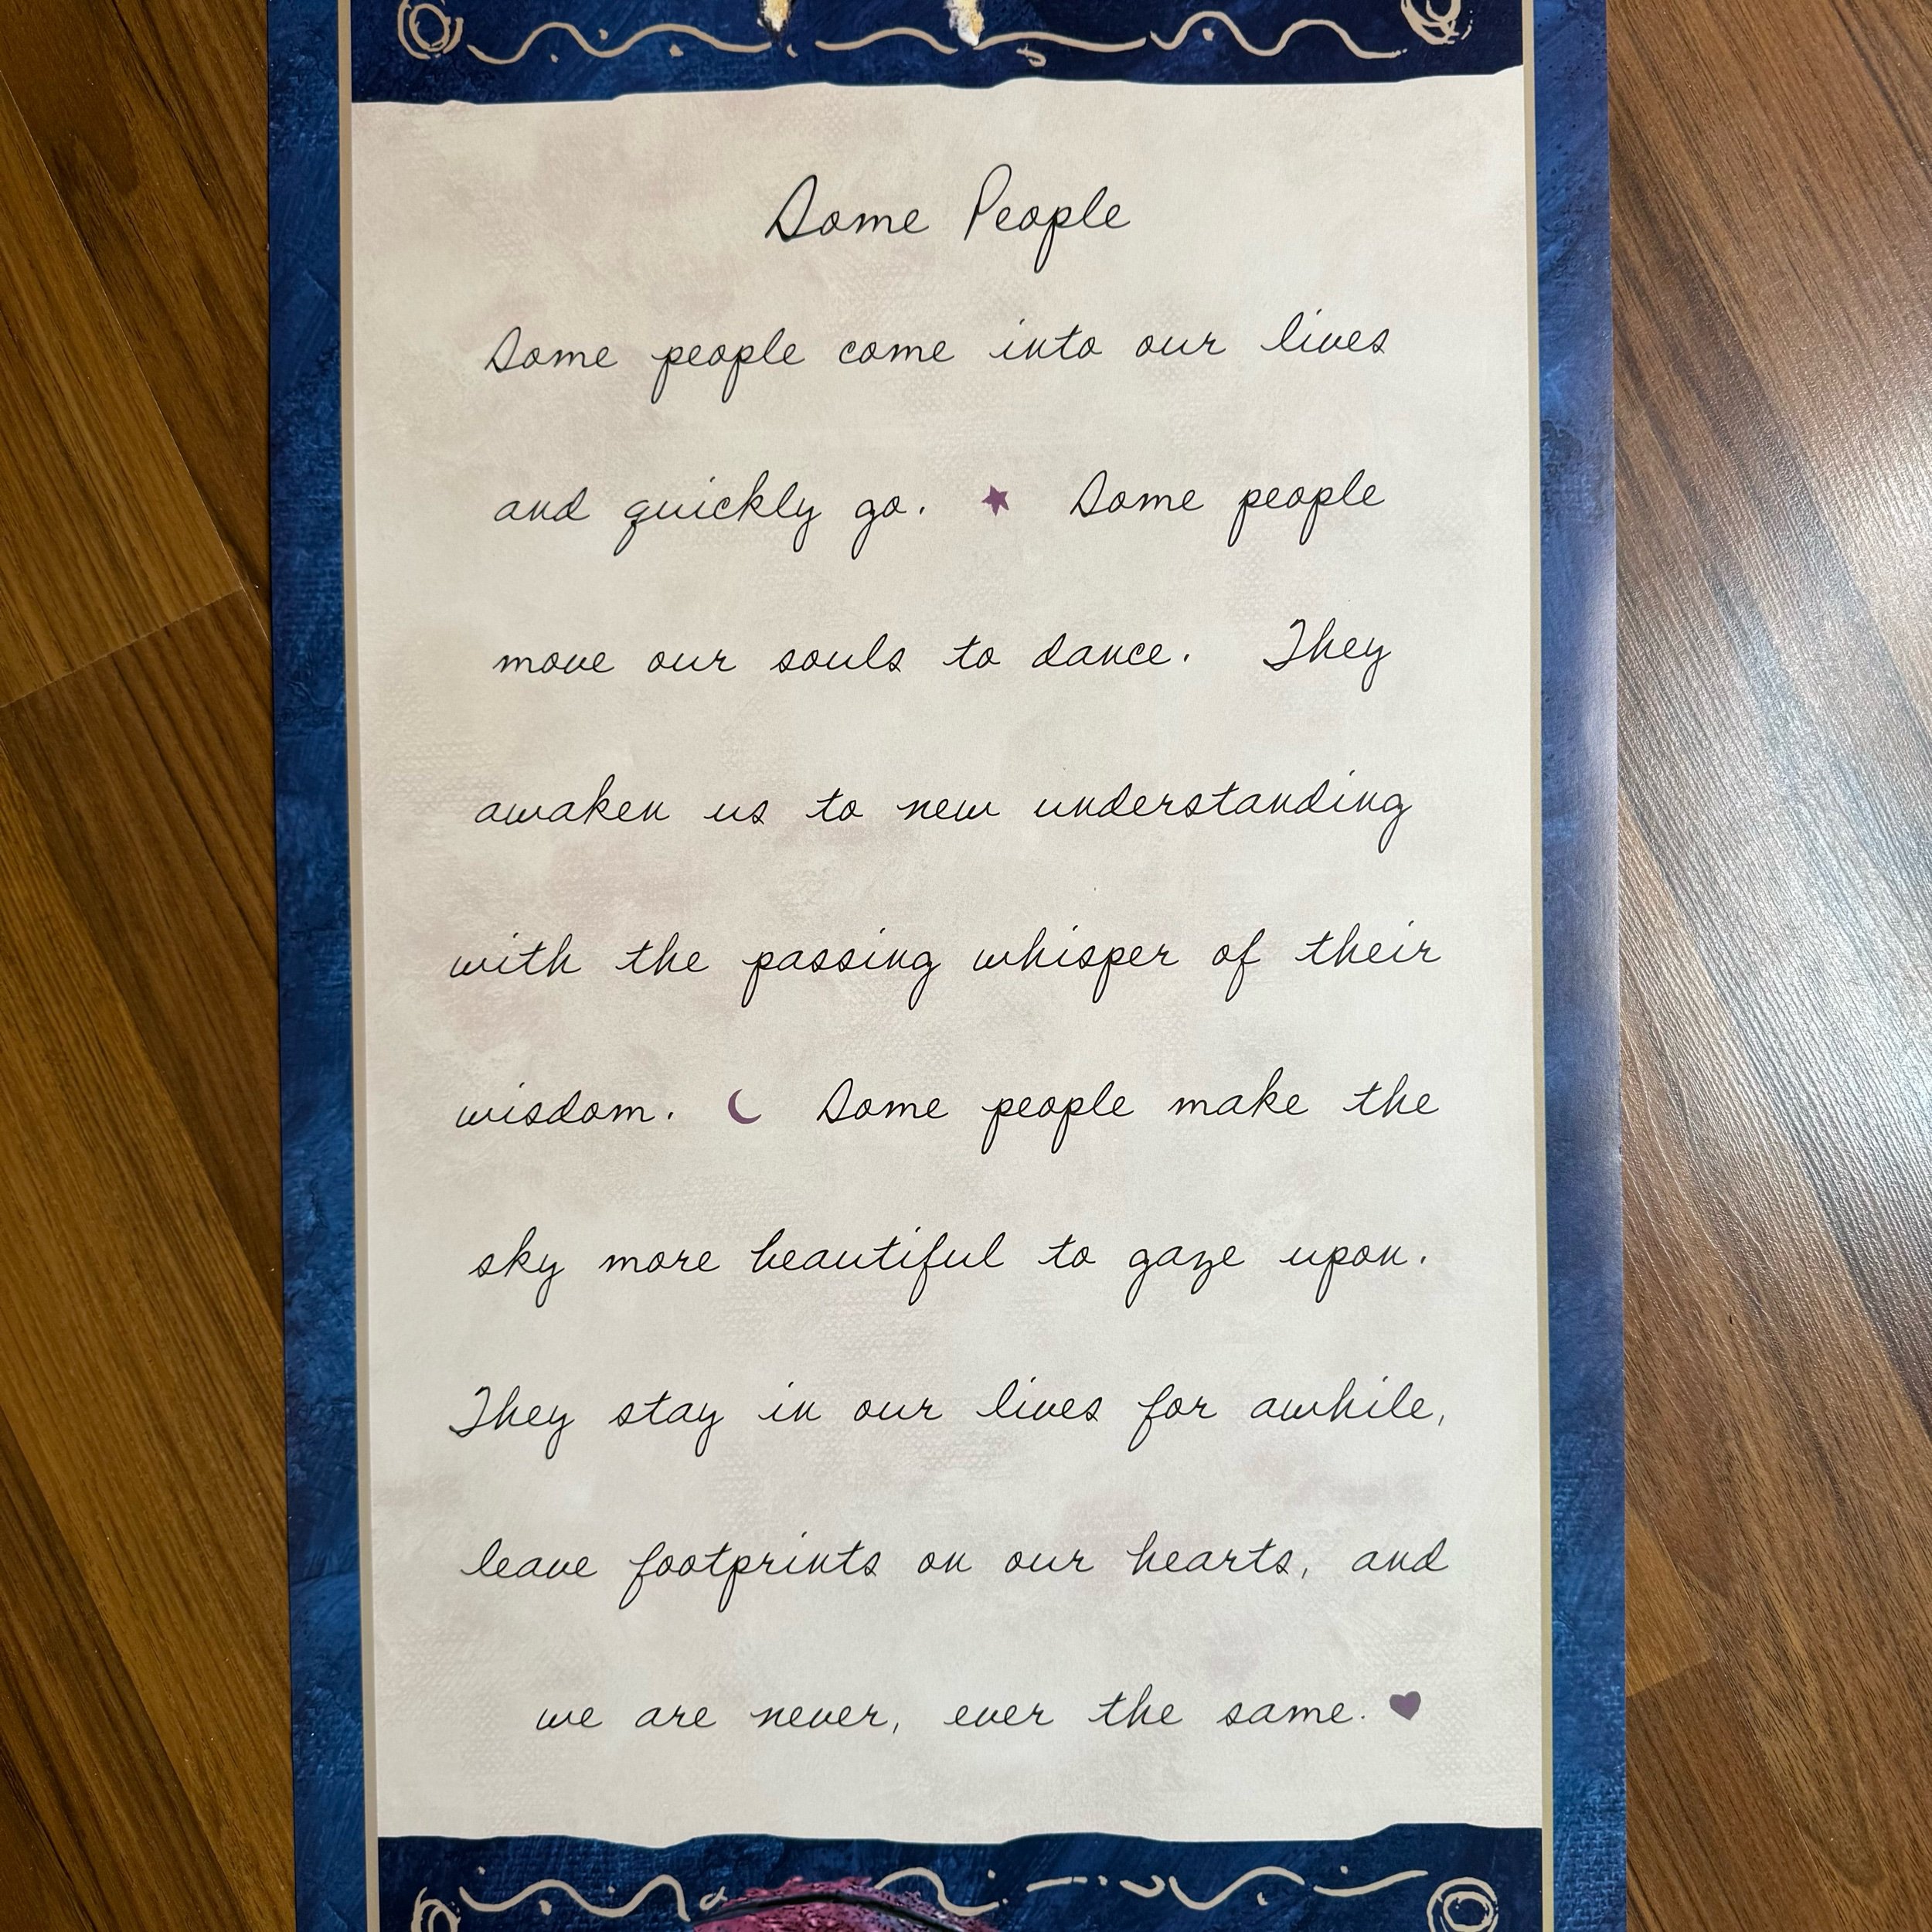 Some People
Some people come into our lives
and quickly go. ★ Some people
move our souls to dance. They
awaken us to new understanding
with the passing whisper of their
wisdom. ☾ Some people make the
sky more beautiful to gaze upon.
They stay in our lives for awhile,
leave footprints on our hearts, and
we are never, ever the same. ♥